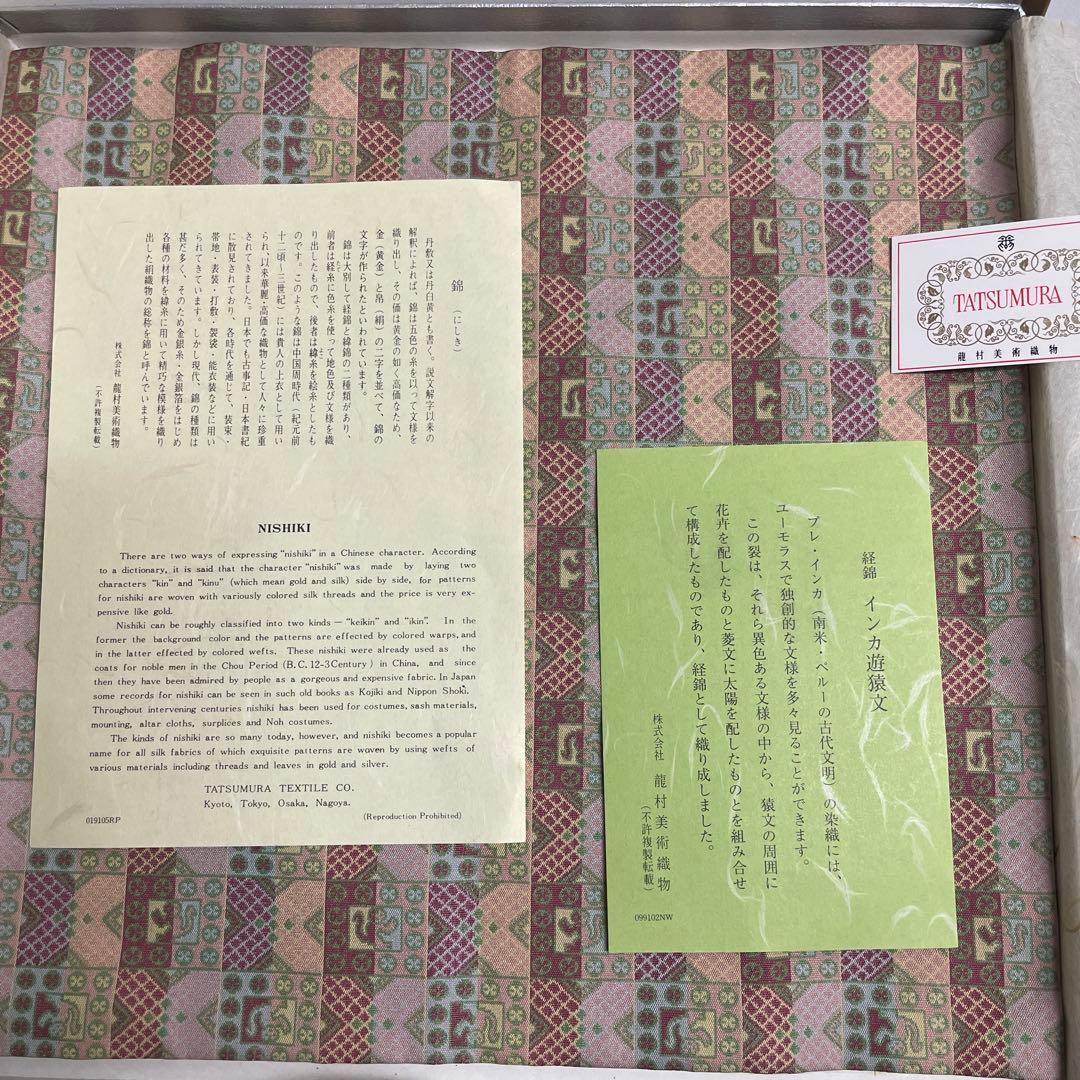 錦 (にしき)
丹敷又は丹白黄とも書く。説文解字以来の
解釈によれば、錦は五色の糸を以って文様を
織り出し、その価は黄金の如く高価なため、
金(黄金)と帛(絹)の二字を並べて、錦の
文字が作られたといわれています。
錦は大別して経錦と緯錦の二種類があり、
前者は経糸に色糸を使って地色及び文様を織
り出したもので、後者は緯糸を絵糸としたも
のです。このような錦は中国周時代(紀元前
十二頃〜三世紀)には貴人の上衣として用い
られ、以来華麗・高価な織物として人々に珍重
されてきました。日本でも古事記・日本書紀
に散見されており、各時代を通じて、装束・
帯地・表装・打敷・袈裟・能衣装などに用い
られてきています。しかし現代、錦の種類は
甚だ多く、そのため金銀糸・金銀箔をはじめ
各種の材料を緯糸に用いて精巧な模様を織り
出した絹織物の総称を錦と呼んでいます。
株式会社 龍村美術織物
(不許複製転載)
NISHIKI
There are two ways of expressing "nishiki" in a Chinese character. According
to a dictionary, it is said that the character "nishiki" was made by laying two
characters "kin" and "kinu" (which mean gold and silk) side by side, for patterns
for nishiki are woven with variously colored silk threads and the price is very ex-
pensive like gold.
Nishiki can be roughly classified into two kinds — "keikin" and "ikin". In the
former the background color and the patterns are effected by colored warps, and
in the latter effected by colored wefts. These nishiki were already used as the
coats for noble men in the Chou Period (B.C. 12-3Century) in China, and since
then they have been admired by people as a gorgeous and expensive fabric. In Japan
some records for nishiki can be seen in such old books as Kojiki and Nippon Shoki.
Throughout intervening centuries nishiki has been used for costumes, sash materials,
mounting, altar cloths, surplices and Noh costumes.
The kinds of nishiki are so many today, however, and nishiki becomes a popular
name for all silk fabrics of which exquisite patterns are woven by using wefts of
various materials including threads and leaves in gold and silver.
TATSUMURA TEXTILE CO.
Kyoto, Tokyo, Osaka, Nagoya.
019105RP
(Reproduction Prohibited)
TATSUMURA
龍村美術織物
経錦 インカ遊猿文
プレ・インカ(南米・ペルーの古代文明)の染織には、
ユーモラスで独創的な文様を多々見ることができます。
この裂は、それら異色ある文様の中から、猿文の周囲に
花卉を配したものと菱文に太陽を配したものとを組み合せ
て構成したものであり、経錦として織り成しました。
株式会社 龍村美術織物
(不許複製転載)
099102NW